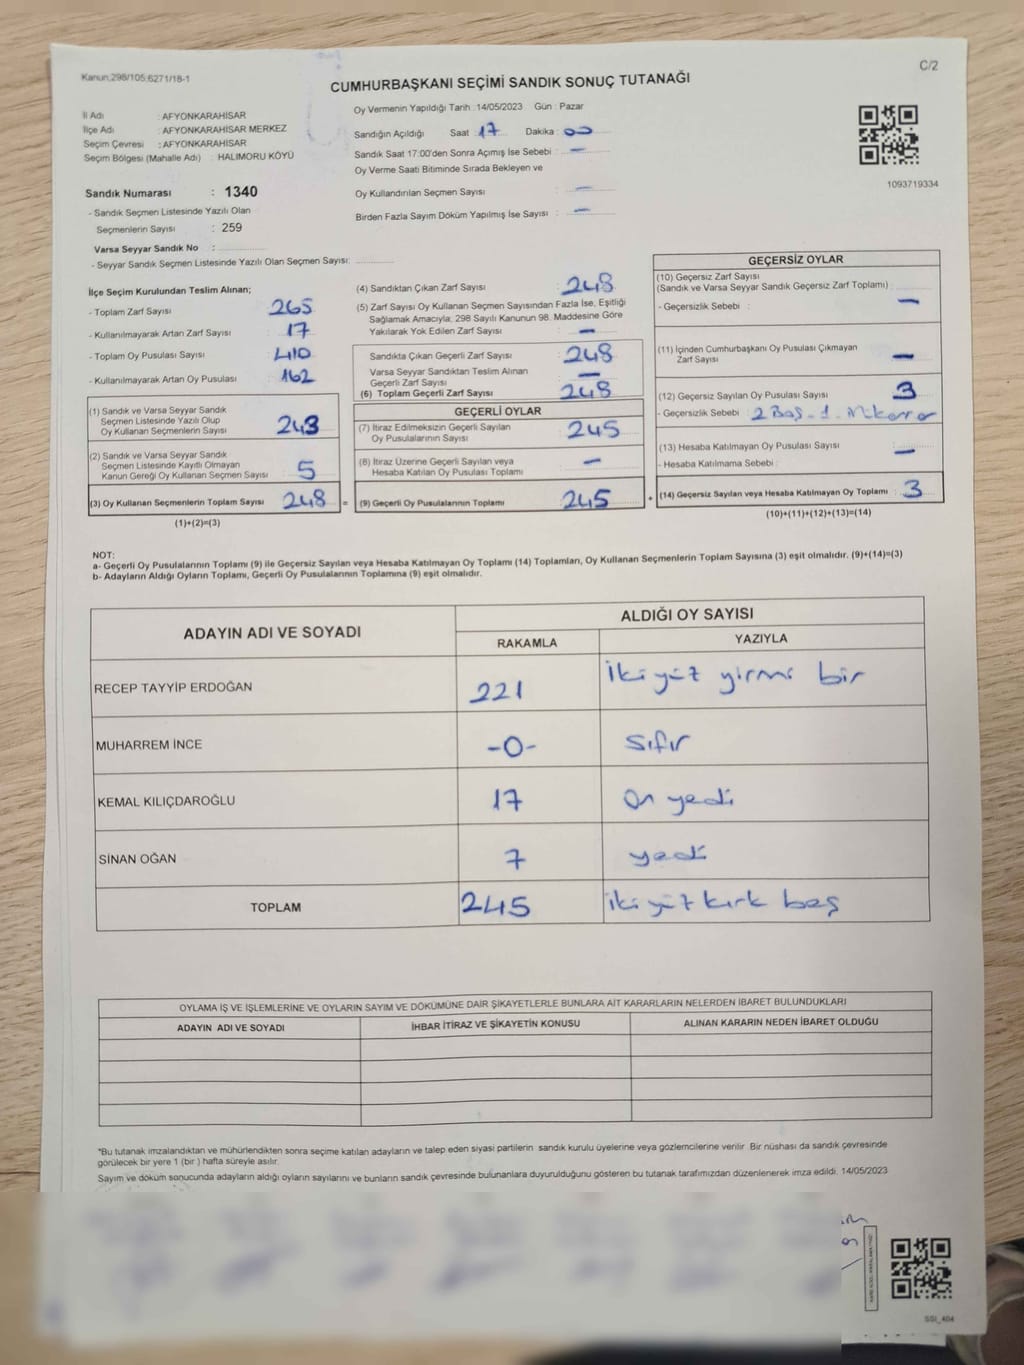 Kanun:298/105;6271/18-1
C/2
CUMHURBAŞKANI SEÇİMİ SANDIK SONUÇ TUTANAĞI
İl Adı : AFYONKARAHİSAR
İlçe Adı : AFYONKARAHİSAR MERKEZ
Seçim Çevresi : AFYONKARAHİSAR
Seçim Bölgesi (Mahalle Adı) : HALIMORU KÖYÜ
Sandık Numarası : 1340
- Sandık Seçmen Listesinde Yazılı Olan
Seçmenlerin Sayısı : 259
Varsa Seyyar Sandık No :
- Seyyar Sandık Seçmen Listesinde Yazılı Olan Seçmen Sayısı:
Oy Vermenin Yapıldığı Tarih : 14/05/2023 Gün : Pazar
Sandığın Açıldığı Saat : 17 Dakika : 00
Sandık Saat 17:00'den Sonra Açımış İse Sebebi : —
Oy Verme Saati Bitiminde Sırada Bekleyen ve
Oy Kullandırılan Seçmen Sayısı : —
Birden Fazla Sayım Döküm Yapılmış İse Sayısı : —
1093719334
İlçe Seçim Kurulundan Teslim Alınan;
- Toplam Zarf Sayısı : 265
- Kullanılmayarak Artan Zarf Sayısı : 17
- Toplam Oy Pusulası Sayısı : 410
- Kullanılmayarak Artan Oy Pusulası : 162
(1) Sandık ve Varsa Seyyar Sandık
Seçmen Listesinde Yazılı Olup
Oy Kullanan Seçmenlerin Sayısı : 243
(2) Sandık ve Varsa Seyyar Sandık
Seçmen Listesinde Kayıtlı Olmayan
Kanun Gereği Oy Kullanan Seçmen Sayısı : 5
(3) Oy Kullanan Seçmenlerin Toplam Sayısı : 248 =
(1)+(2)=(3)
(4) Sandıktan Çıkan Zarf Sayısı : 248
(5) Zarf Sayısı Oy Kullanan Seçmen Sayısından Fazla İse, Eşitliği
Sağlamak Amacıyla; 298 Sayılı Kanunun 98. Maddesine Göre
Yakılarak Yok Edilen Zarf Sayısı : —
Sandıkta Çıkan Geçerli Zarf Sayısı : 248
Varsa Seyyar Sandıktan Teslim Alınan
Geçerli Zarf Sayısı : —
(6) Toplam Geçerli Zarf Sayısı : 248
GEÇERLİ OYLAR
(7) İtiraz Edilmeksizin Geçerli Sayılan
Oy Pusulalarının Sayısı : 245
(8) İtiraz Üzerine Geçerli Sayılan veya
Hesaba Katılan Oy Pusulası Toplamı : —
(9) Geçerli Oy Pusulalarının Toplamı : 245 +
GEÇERSİZ OYLAR
(10) Geçersiz Zarf Sayısı
(Sandık ve Varsa Seyyar Sandık Geçersiz Zarf Toplamı) :
- Geçersizlik Sebebi : —
(11) İçinden Cumhurbaşkanı Oy Pusulası Çıkmayan
Zarf Sayısı : —
(12) Geçersiz Sayılan Oy Pusulası Sayısı : 3
- Geçersizlik Sebebi : 2 Boş - 1
(13) Hesaba Katılmayan Oy Pusulası Sayısı : —
- Hesaba Katılmama Sebebi :
(14) Geçersiz Sayılan veya Hesaba Katılmayan Oy Toplamı : 3
(10)+(11)+(12)+(13)=(14)
NOT:
a- Geçerli Oy Pusulalarının Toplamı (9) ile Geçersiz Sayılan veya Hesaba Katılmayan Oy Toplamı (14) Toplamları, Oy Kullanan Seçmenlerin Toplam Sayısına (3) eşit olmalıdır. (9)+(14)=(3)
b- Adayların Aldığı Oyların Toplamı, Geçerli Oy Pusulalarının Toplamına (9) eşit olmalıdır.
ADAYIN ADI VE SOYADI ALDIĞI OY SAYISI
RAKAMLA YAZIYLA
RECEP TAYYİP ERDOĞAN 221 iki yüz yirmi bir
MUHARREM İNCE -0- sıfır
KEMAL KILIÇDAROĞLU 17 On yedi
SİNAN OĞAN 7 yedi
TOPLAM 245 iki yüz kırk beş
OYLAMA İŞ VE İŞLEMLERİNE VE OYLARIN SAYIM VE DÖKÜMÜNE DAİR ŞİKAYETLERLE BUNLARA AİT KARARLARIN NELERDEN İBARET BULUNDUKLARI
ADAYIN ADI VE SOYADI İHBAR İTİRAZ VE ŞİKAYETİN KONUSU ALINAN KARARIN NEDEN İBARET OLDUĞU
*Bu tutanak imzalandıktan ve mühürlendikten sonra seçime katılan adayların ve talep eden siyasi partilerin sandık kurulu üyelerine veya gözlemcilerine verilir. Bir nüshası da sandık çevresinde
görülecek bir yere 1 (bir) hafta süreyle asılır.
Sayım ve döküm sonucunda adayların aldığı oyların sayılarını ve bunların sandık çevresinde bulunanlara duyurulduğunu gösteren bu tutanak tarafımızdan düzenlenerek imza edildi. 14/05/2023
SSI_404